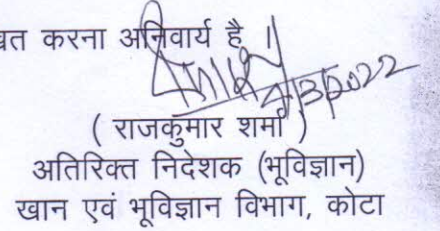 खित करना अनिवार्य है ।
4/3/2022
( राजकुमार शर्मा )
अतिरिक्त निदेशक (भूविज्ञान)
खान एवं भूविज्ञान विभाग, कोटा